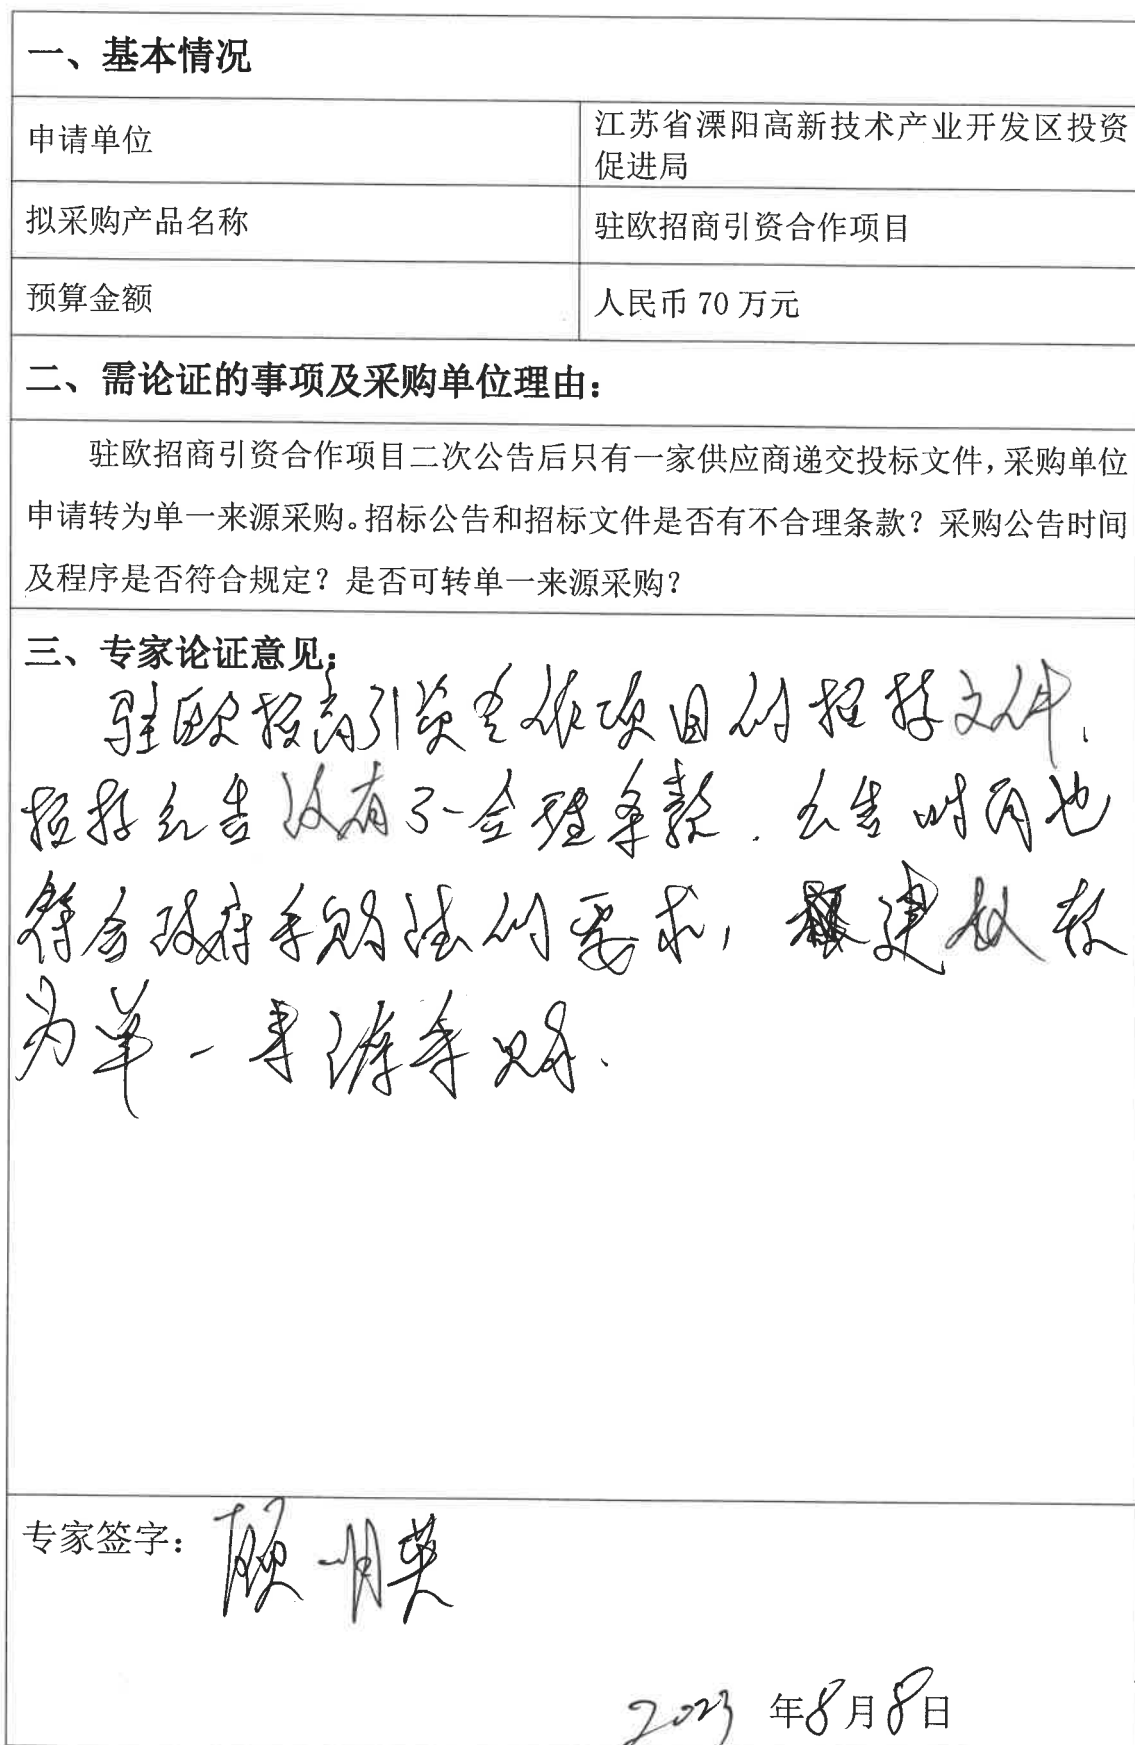 一、基本情况
申请单位
江苏省溧阳高新技术产业开发区投资
促进局
拟采购产品名称
驻欧招商引资合作项目
预算金额
人民币 70 万元
二、需论证的事项及采购单位理由：
驻欧招商引资合作项目二次公告后只有一家供应商递交投标文件，采购单位
申请转为单一来源采购。招标公告和招标文件是否有不合理条款？采购公告时间
及程序是否符合规定？是否可转单一来源采购？
三、专家论证意见：
驻欧招商引资合作项目的招标文件、
招标公告没有不合理条款．公告时间也
符合政府采购法的要求，建议转
为单一来源采购.
专家签字：
顾明英
2023 年8月8日